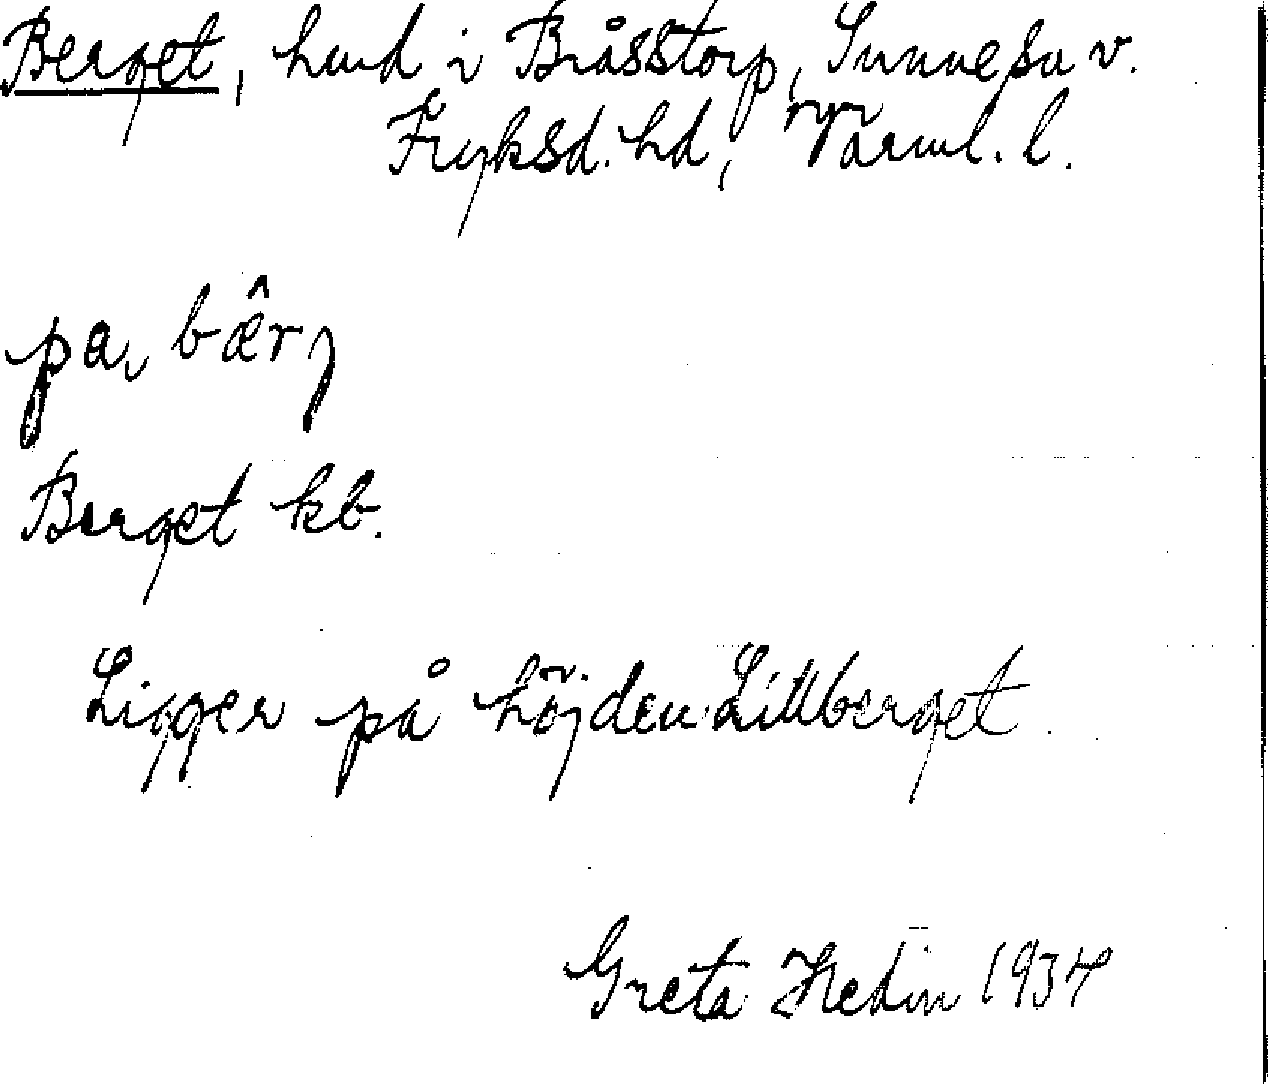 Berget, hmd i Bråsstorp, Sunne sn v.
Fryksd. hd, Värml. l.
pa, bær
Berget kb.
Ligger på höjden Lillberget.
Greta Hedin 1934